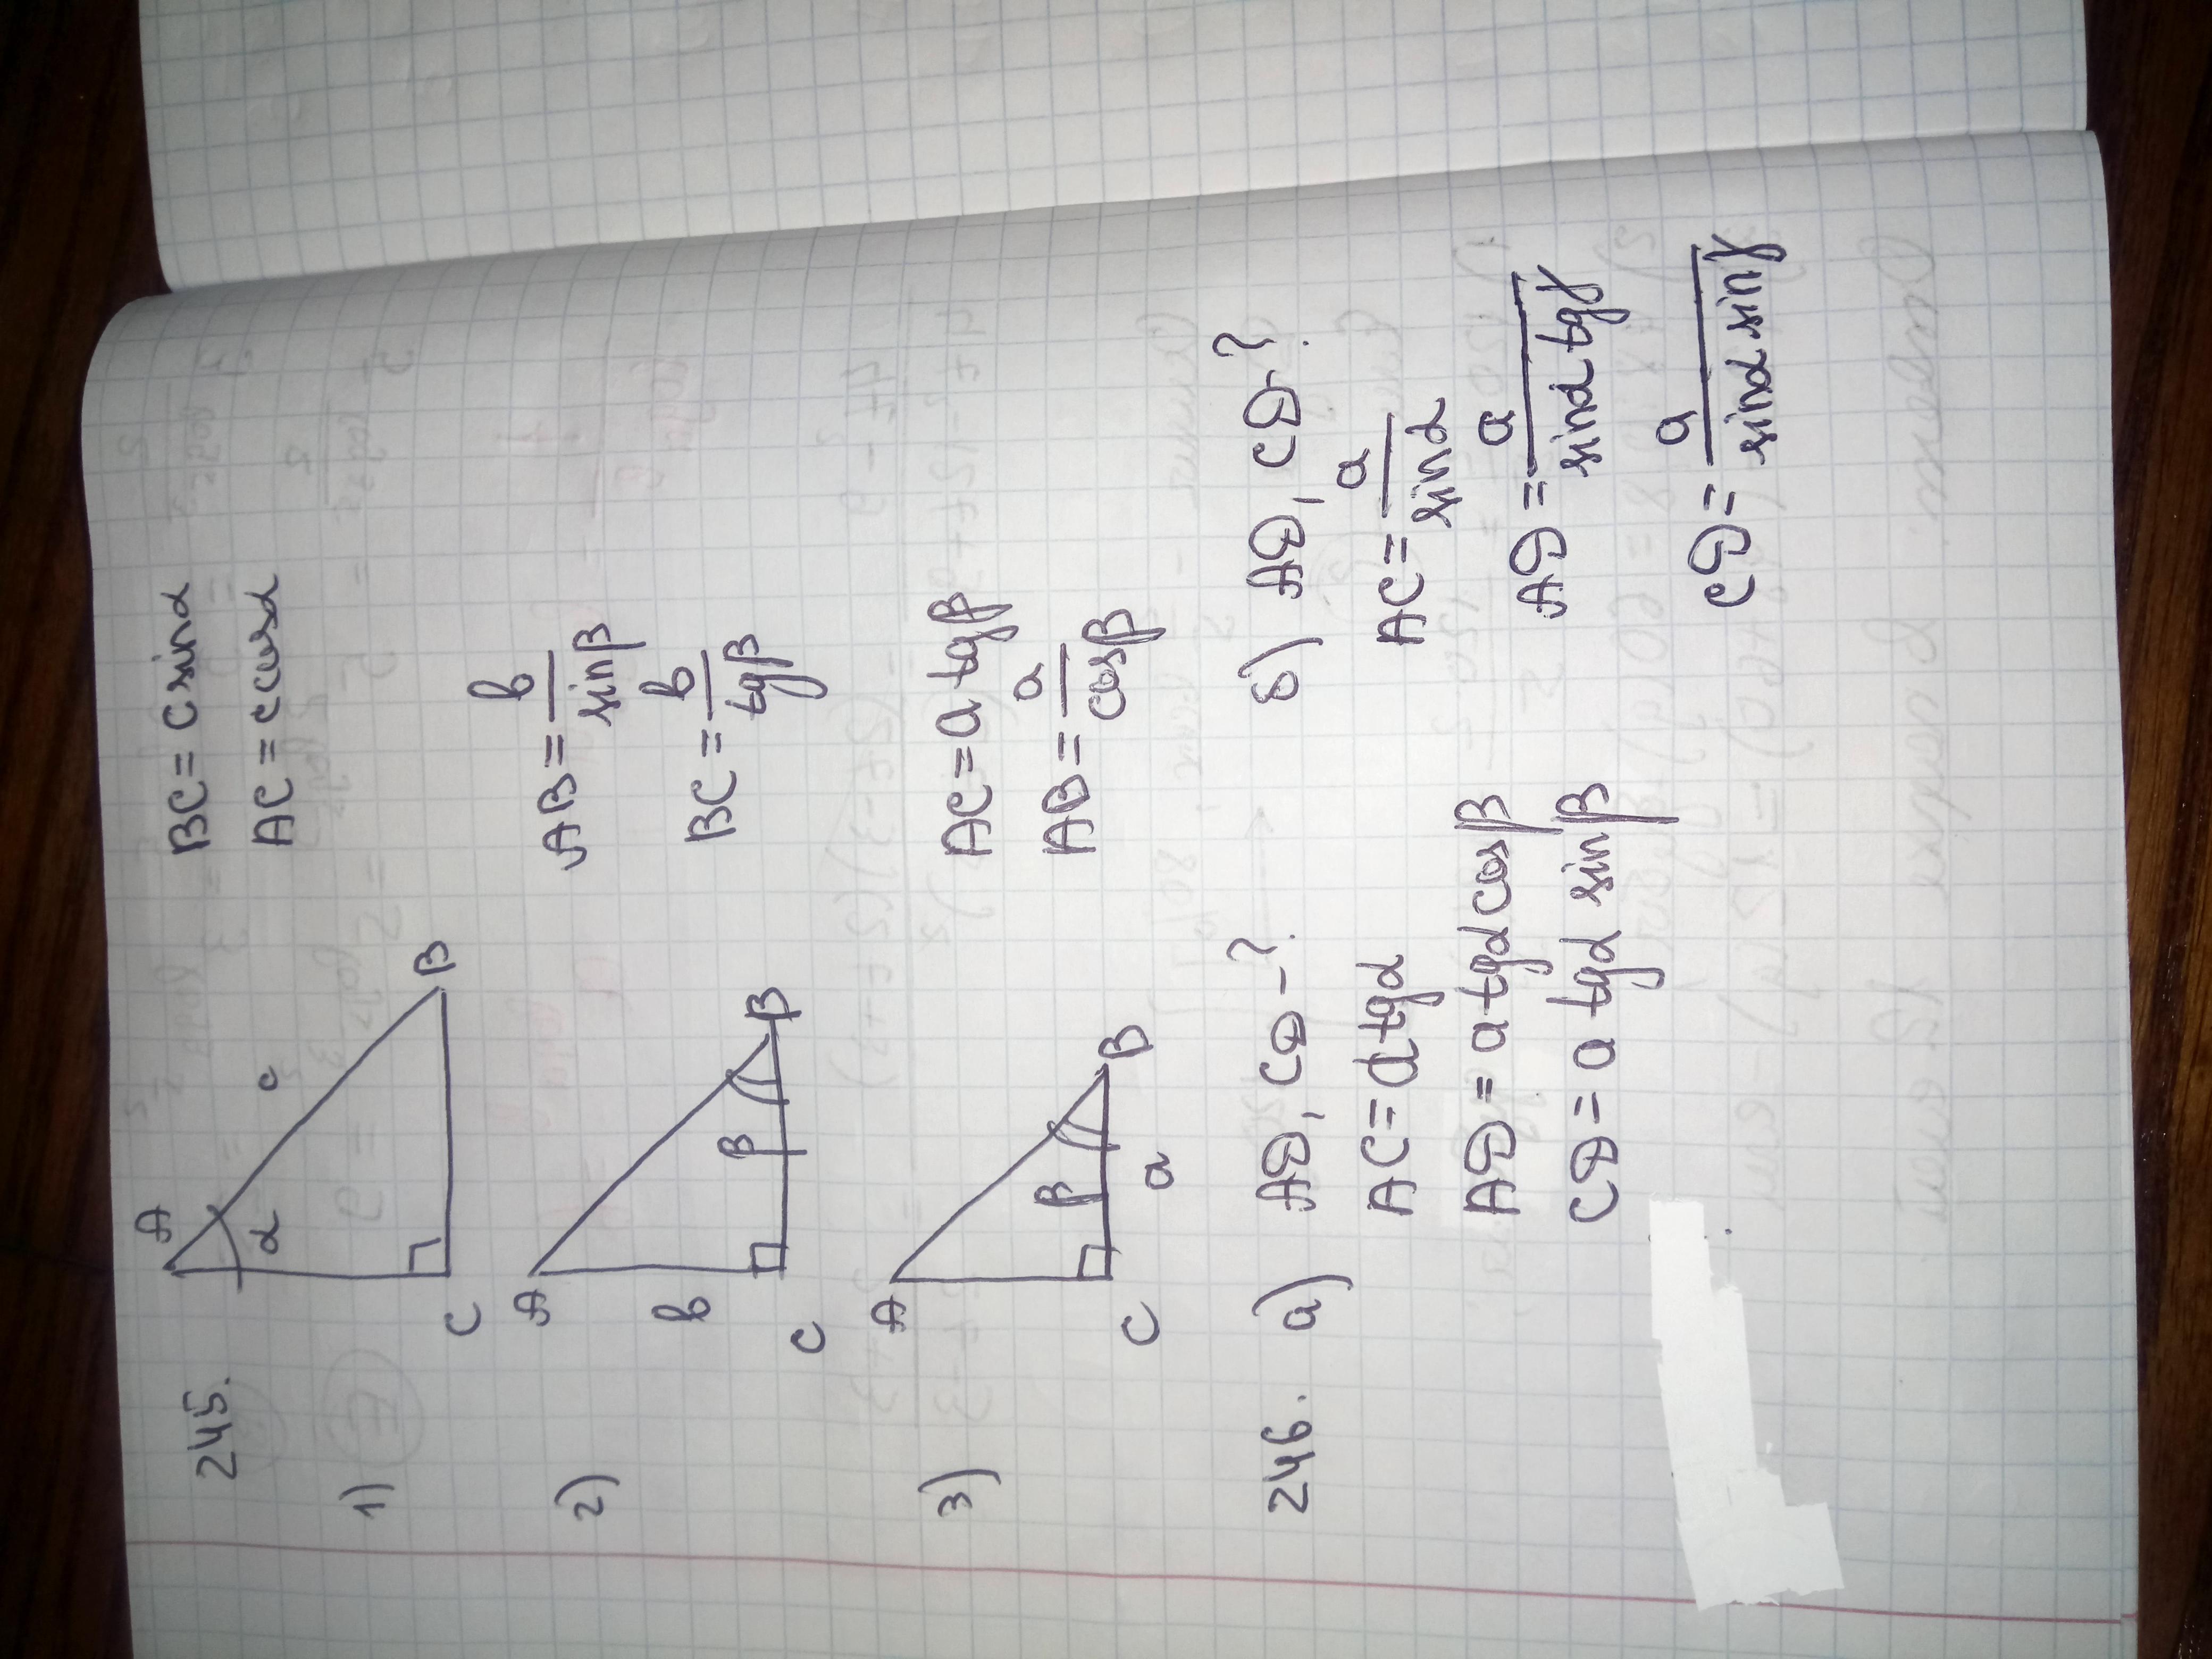 245.
1) A α c C B
BC = c sinα
AC = c cosα
2) A b C β B
AB = b/sinβ
BC = b/tgβ
3) A C β a B
AC = a tgβ
AB = a/cosβ
246. а) AD, CD - ?
AC = a tgα
AD = a tgα cosβ
CD = a tgα sinβ
б) AD, CD - ?
AC = a/sinα
AD = a/sinα tgγ
CD = a/sinα sinγ